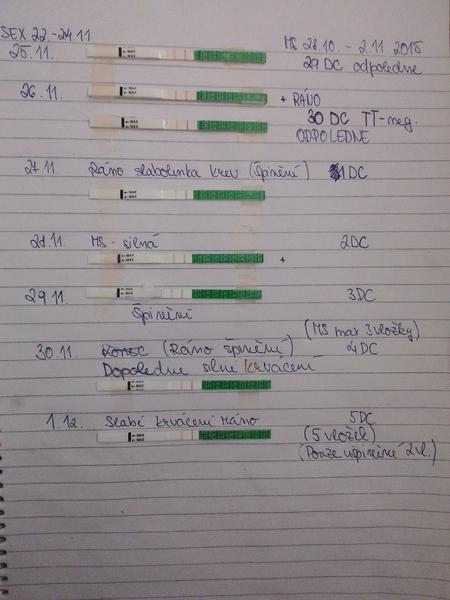 SEX 22.-24.11
MS 28.10. - 2.11 2015
25.11.
29 DC odpoledne
26.11.
+ RÁNO
30 DC TT-neg.
ODPOLEDNE
27.11
Ráno slabolinka krev (Špinění)
1DC
28.11.
MS - silná
2DC
+
29.11.
3DC
Špinění
(MS max 3 vložky)
30.11.
Konec (Ráno špinění)
4DC
Dopoledne silné krvácení
1.12.
Slabé krvácení ráno
5DC
(5 vložek)
(Pouze ušpiněné 2 vl.)